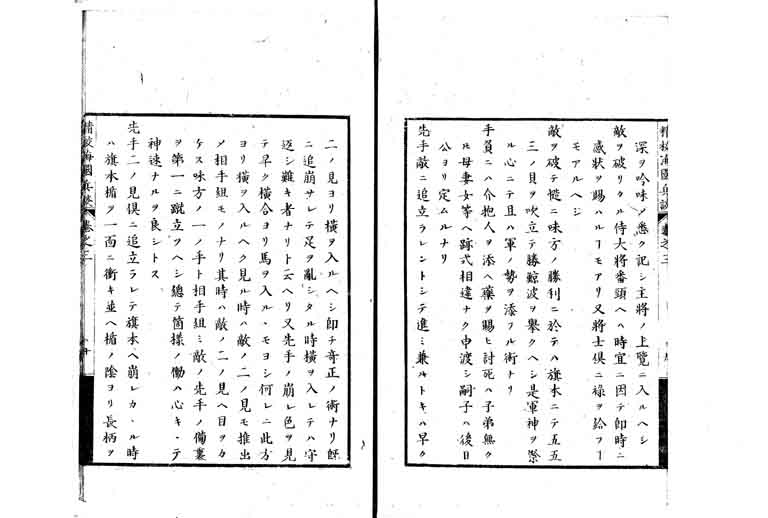 精校海國兵談 卷之三
深ヲ吟味メ悉ク記シ主將ノ上覽ニ入ルヘシ
敵ヲ破リタル侍大將番頭ヘハ時宜ニ因テ即時ニ
感狀ヲ賜ハルヿモアリ又將士倶ニ祿ヲ給フヿ
モアルヘシ
敵ヲ破テ慥ニ味方ノ勝利ニ於テハ旗本ニテ五五
三ノ貝ヲ吹立テ勝鯨波ヲ擧クヘシ是軍神ヲ祭
ル心ニテ且ハ軍ノ勢ヲ添フル術ナリ
手負ニハ介抱人ヲ添ヘ藥ヲ賜ヒ討死ハ子弟無ク
ルモ母妻女等ヘ跡式相違ナク申渡シ嗣子ハ後日
公ヨリ定ムルナリ
先手敵ニ追立ラレントシテ進ミ兼ルトキハ早ク
二ノ見ヨリ橫ヲ入ルヘシ即チ奇正ノ術ナリ既
ニ追崩サレテ足ヲ亂シタル時橫ヲ入レテハ守
返シ難キ者ナリト云ヘリ又先手ノ崩レ色ヲ見
テ早ク橫合ヨリ馬ヲ入ル、モヨシ何レニ此方
ヨリ橫ヲ入ルヘク見ル時ハ敵ノ二ノ見モ推出
メ相手組モノナリ其時ハ敵ノ二ノ見ヘ目ヲカ
ケス味方ノ一ノ手ト相手組ミ敵ノ先手ノ備裏
ヲ第一ニ蹴立ツヘシ總テ箇樣ノ働ハ心キ、テ
神速ナルヲ良シトス
先手二ノ見倶ニ追立ラレテ旗本ヘ崩レカ、ル時
ハ旗本楯ヲ一面ニ衝キ並ヘ楯ノ陰ヨリ長柄ヲ
精校海國兵談 卷之三